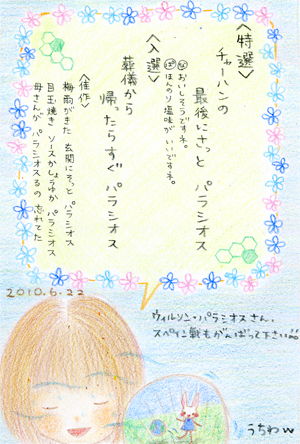 〈特選〉
チャーハンの
最後にさっと パラシオス
㊛おいしそうですネ。
㊛ほんのり塩味がいいですネ。
〈入選〉
葬儀から
帰ったらすぐ パラシオス
〈佳作〉
梅雨がきた 玄関にそっと パラシオス
目玉焼き ソースかしょうゆか パラシオス
母さんが パラシオスるの 忘れてた
2010.6.22
ウィルソン・パラシオスさん、
スペイン戦もがんばって下さい!!
うちわw